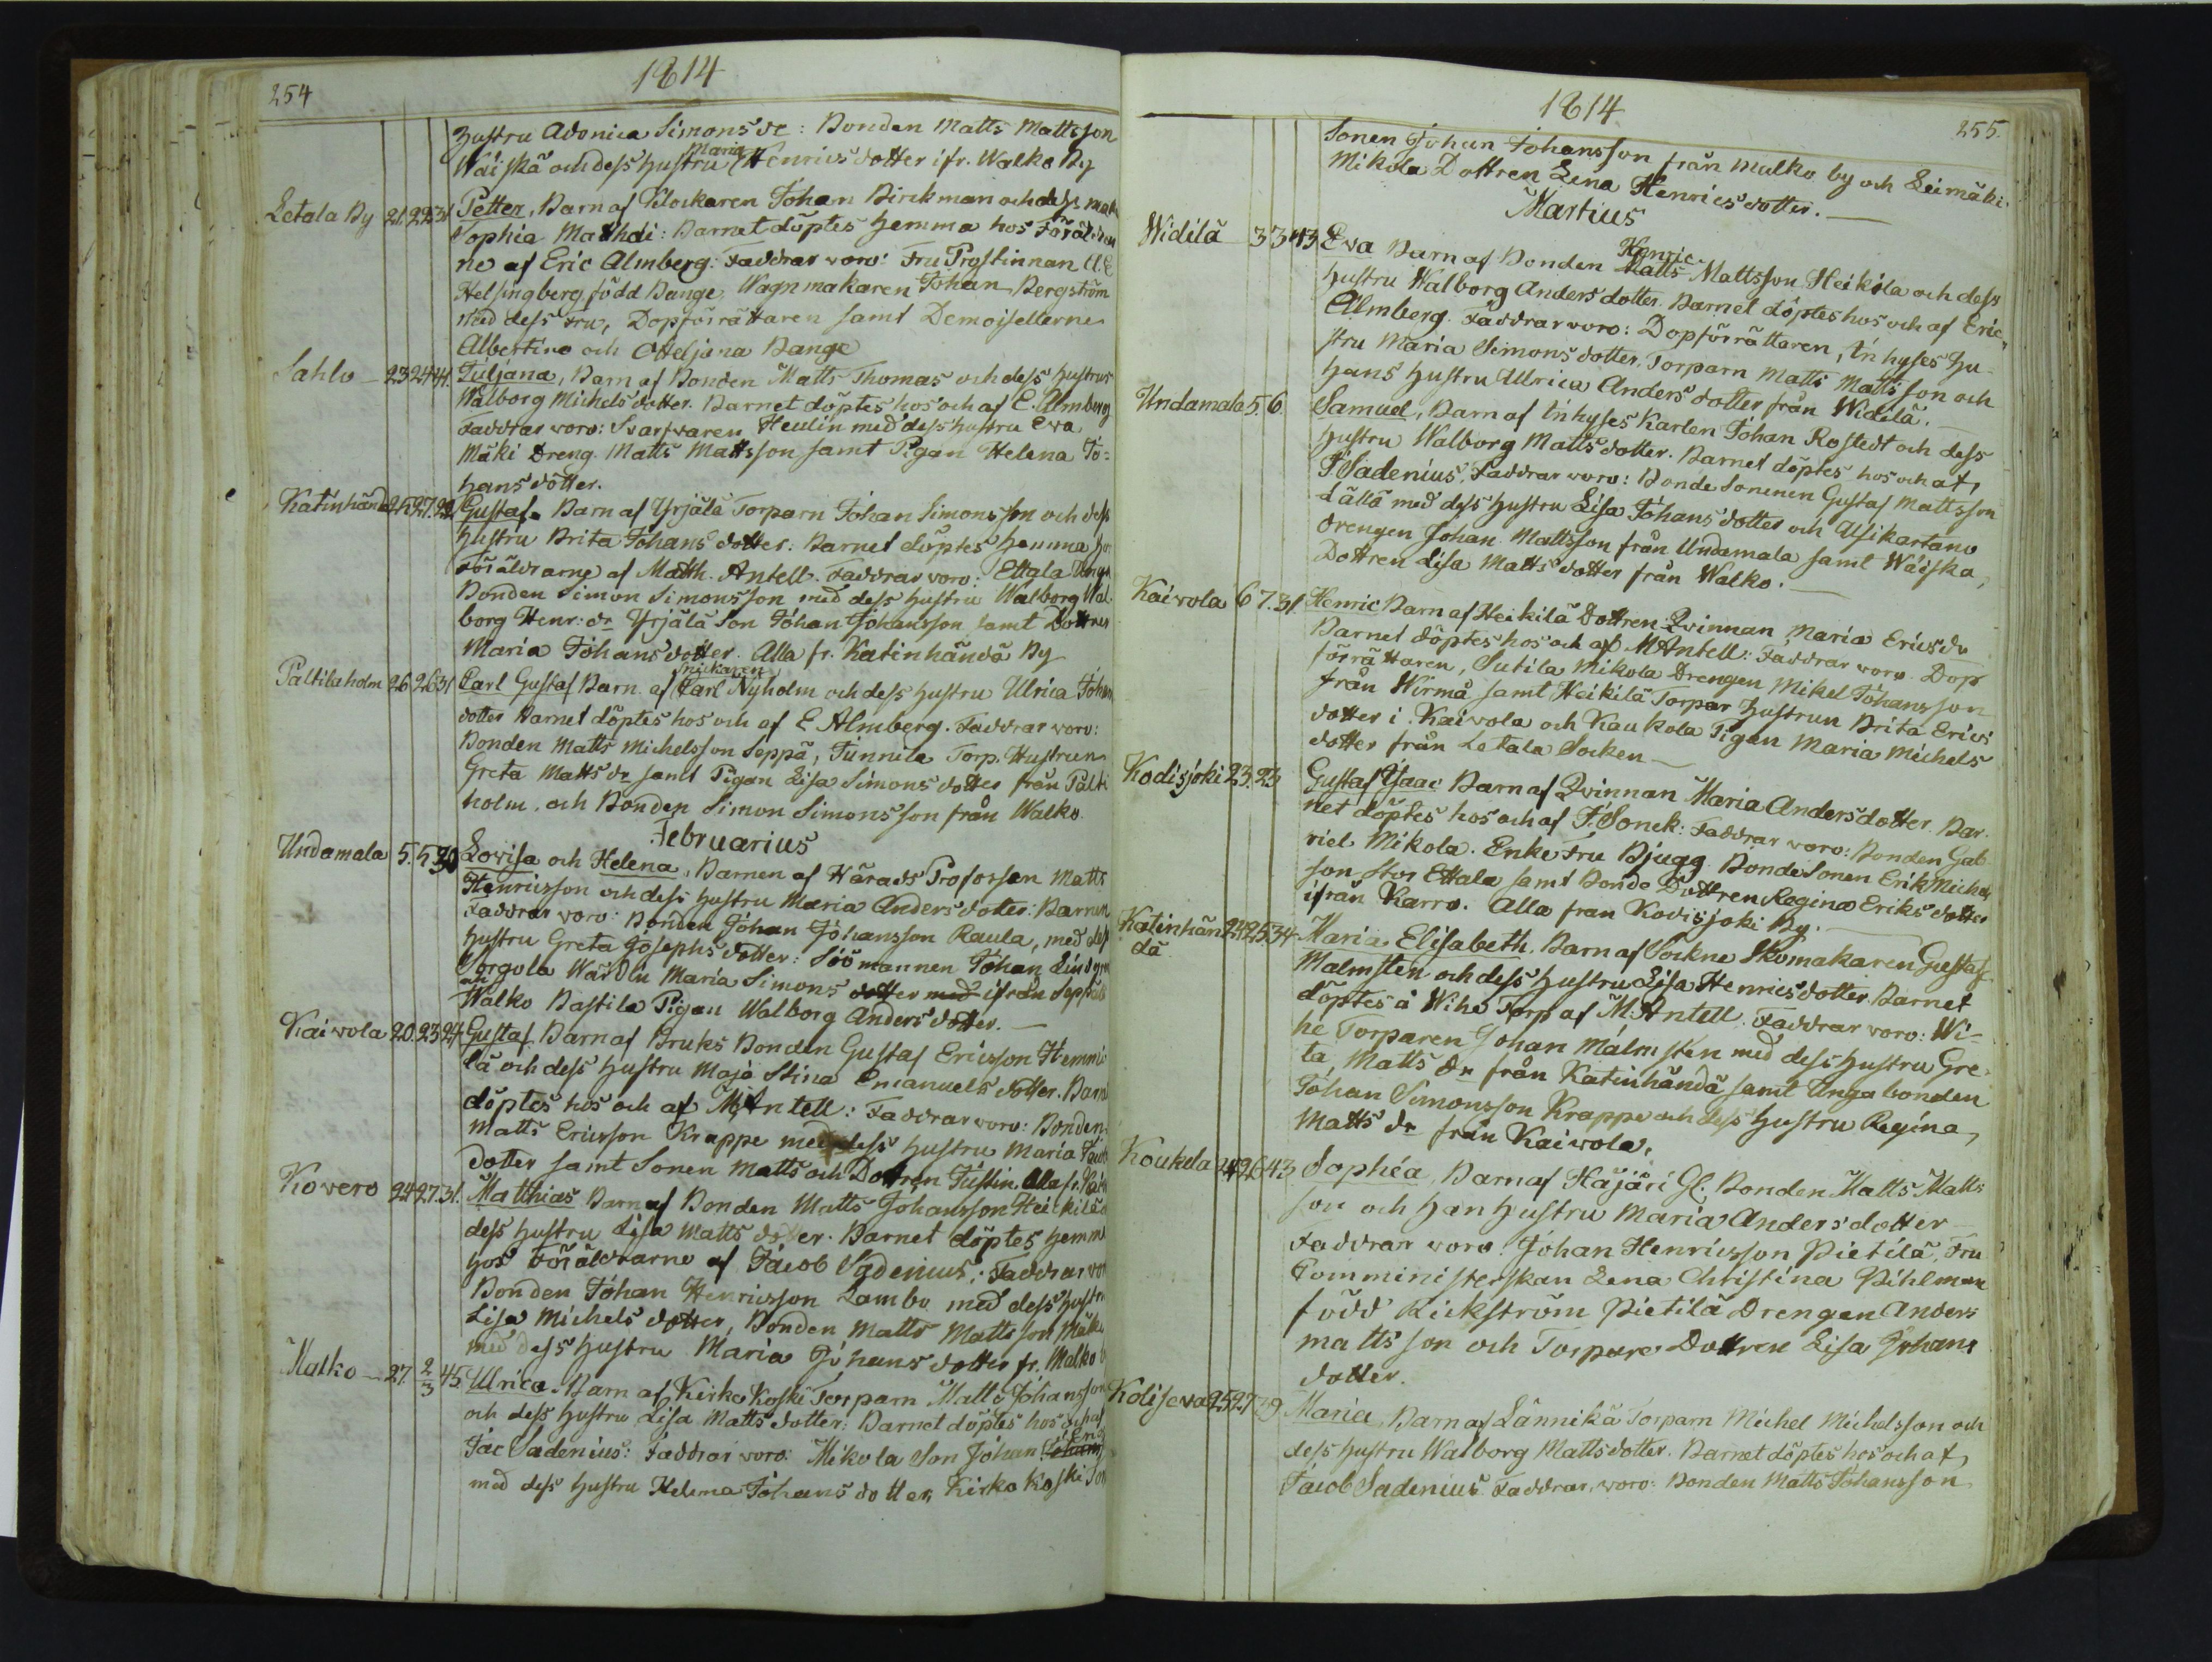 254
1814
Hustru Adonica Simons dr: Bonden Matts Mattsson
Wäiskä och dess hustru Maria Henricsdotter ifr. Walko By
Letala By 21. 22. 31 Petter, Barn af Klockaren Johan Birckman och dess mak
Sophia Mathdi: Barnet döptes hemma hos Föräldrar
ne af Eric Almberg: Faddrar voro: Fru Prostinnan U. E
Helsingberg född Bange, Wagnmakaren Johan Bergström
med dess fru, Dopförrättaren samt Demoisellerne
Albertina och Otteljana Bange
Sahlo 23 24 41. Juljana, Barn af Bonden Matts Thomas och dess hustrus
Walborg Michels dotter. Barnet döptes hos och af E. Almberg
Faddrar voro: Svarfvaren Heulin med dess hustru Eva
Mäki Dreng Matts Mattsson samt Pigan Helena Jo=
hans dotter.
Katinhänd 25 27. 29 Gustaf. Barn af Yrjälä Torparn Johan Simonsson och dess
hustru Brita Johans dotter: Barnet döptes hemma hos
Föräldrarne af Matth. Antell. Faddrar voro: Ettala Unga
Bonden Simon Simonsson med dess hustru Walborg Wal
borg Henr: dr Yrjälä Son Johan Johansson samt Dottren
Maria Johans dotter. Alla fr. Katinhändä By
Paltila holm 26 26 31 Carl Gustaf Barn af snikaren Carl Nyholm och dess hustru Ulrica Johans
dotter Barnet döptes hos och af E Almberg. Faddrar voro:
Bonden Matts Michelsson Seppä, Tunnila Torp. Hustrun
Greta Matts dr samt Pigan Lisa Simons dotter från Palti
holm, och Bonden Simon Simonsson från Walko.
Februarius
Undamala 5. 5 30 Lovisa och Helena, Barnen af Härads Profossen Matts
Henricsson och dess hustru Maria Anders dotter: Barnen
Faddrar voro: Bonden Johan Johansson Raula, med dess
hustru Greta Josephs dotter: Söömannen Johan Lindgren
Sorgola Wärdin Maria Simons dotter med ifrån Seppälä
och Walko Bastila Pigan Walborg Anders dotter.
Kaivola 20. 23 27 Gustaf. Barn af Bruks Bonden Gustaf Ericsson Hemmi
lä och dess hustru Maja Stina Emanuels dotter. Barn
döptes hos och af M Antell: Faddrar voro: Bonden
Matts Ericsson Krappe med dess hustru Maria Jacob
dotter samt Sonen Matts och Dottren Justin. Alla fr. Kaiv
Kovero 24 27. 31. Matthias Barn af Bonden Matts Johansson Heickilä o
dess hustru Lisa Matts dotter. Barnet döptes hemma
hos Föräldrarne af Jacob Sadenius: Faddrar vor
Bonden Johan Henricsson Lambo med dess hustru
Lisa Michels dotter, Bonden Matts Mattsson Mäki
med dess hustru Maria Johans dotter fr. Malko b
Malko 27. 2/3 45. Ulrica. Barn af Kirko Koski Torparn Matts Johansson
och dess hustru Lisa Matts dotter: Barnet döptes hos och af
Jac Sadenius: Faddrar voro: Mikola Son Johan Johans
med dess hustru Helena Johans dotter, Kirko Koski Son
1814
255.
Sonen Johan Johansson från Malko by och Leimäki
Mikola Dottren Lena Henricsdotter.
Martius
Widilä 3 3 43 Eva Barn af Bonden Matts Henric Mattsson Heikilä och dess
hustru Walborg Anders dotter. Barnet döptes hos och af Eric
Almberg. Faddrar voro: Dopförrättaren, Inhyses Hu
stru Maria Simons dotter, Torparn Matts Mattsson och
hans hustru Ullrica Anders dotter från Widilä.
Undamala 5. 6 Samuel, Barn af Inhyses Karlen Johan Rostedt och dess
hustru Walborg Matts dotter. Barnet döptes hos och af
J Sadenius. Faddrar voro: Bonde Sonenen Gustaf Mattsson
Lällä med dess hustru Lisa Johans dotter och Alikartano
drengen Johan Mattsson från Undamala samt Wäiska
Dottren Lisa Matts dotter från Walko.
Kaivola 6 7. 31. Henric Barn af Heikilä Dottren Qvinnan Maria Erics dr
Barnet döptes hos och af M Antell: Faddrar voro. Dop
förrättaren, Sutila Mikola Drengen Mikel Johansson
från Wirmå samt Heikilä Torpar Hustrun Brita Erics
dotter i Kaivola och Kaukola Pigan Maria Michels
dotter från Letala Socken
Kodisjoki 23. 23 Gustaf Isaac Barn af Qvinnan Maria Andersdotter. Bar
net döptes hos och af F. Sonck: Faddrar voro: Bonden Gab
riel Mikola. Enke Fru Bjugg. Bonde Sonen Erik Michels
son Stor Ettala samt Bonde Dottren Regina Eriks dotter
ifrån Karro. Alla från Kodisjoki By.
Katinhän dä 24 25 34 Maria Elisabeth. Barn af Sockne Skomakaren Gustaf
Malmsten och dess hustru Lisa Henricsdotter Barnet
döptes å Wihe Torp af M: Antell. Faddrar voro: Wi-
he Torparen Johan Malmsten med dess hustru Gre
ta, Matts dr från Katinhändä samt Unga bonden
Johan Simonsson Krappe och dess hustru Regina
Matts dr från Kaivola.
Koukela 24 26 43 Sophia, Barn af Häjäri Gl. Bonden Matts Matts
son och han hustru Maria Andersdotter
Faddrar voro: Johan Henricsson Pietilä, Fru
Comministerskan Lena Christina Pihlman
född Kickström Pietilä Drengen Anders
Mattsson och Torpare Dottren Lisa Johans
dotter.
Koliseva 25 27 39 Maria, Barn af Lännikä Torparn Michel Michelsson och
dess hustru Walborg Mattsdotter. Barnet döptes hos och af
Jacob Sadenius Faddrar voro: Bonden Matts Johansson